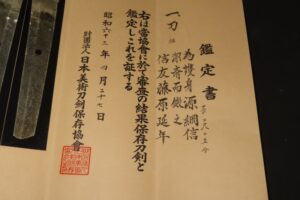 鑑定書
一、刀
為護身源綱信
宗寄而作之
信友藤原延年
右は當協會に於て審査の結果保存刀剣と
鑑定しこれを証する
昭和六十二年 月二十七日
財團法人日本美術刀剣保存協會